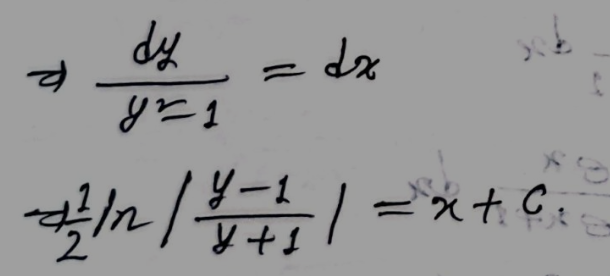 ⇒ dy/(y²-1) = dx
⇒ 1/2 ln |(y-1)/(y+1)| = x + C.